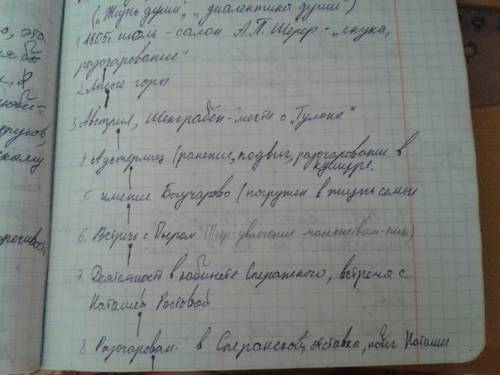 ("Жизнь души", "диалектика души")
1. 1805г июль - салон А.П. Шерер - "скука,
разочарование"
2. Лысые горы
3. Австрия, Шенграбен - мечты о "Тулоне"
4. Аустерлиц (ранение, подвиг, разочарование в
кумире
5. имение Богучарово (погружен в жизнь семьи
6. Встреча с Пьером
7. Деятельность в кабинете Сперанского, встреча с
Наташей Ростовой
8. Разочарован. в Сперанском, отставка, Наташи
о, это
скому